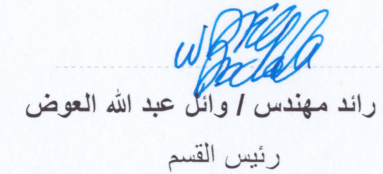 رائد مهندس / وائل عبد الله العوض
رئيس القسم